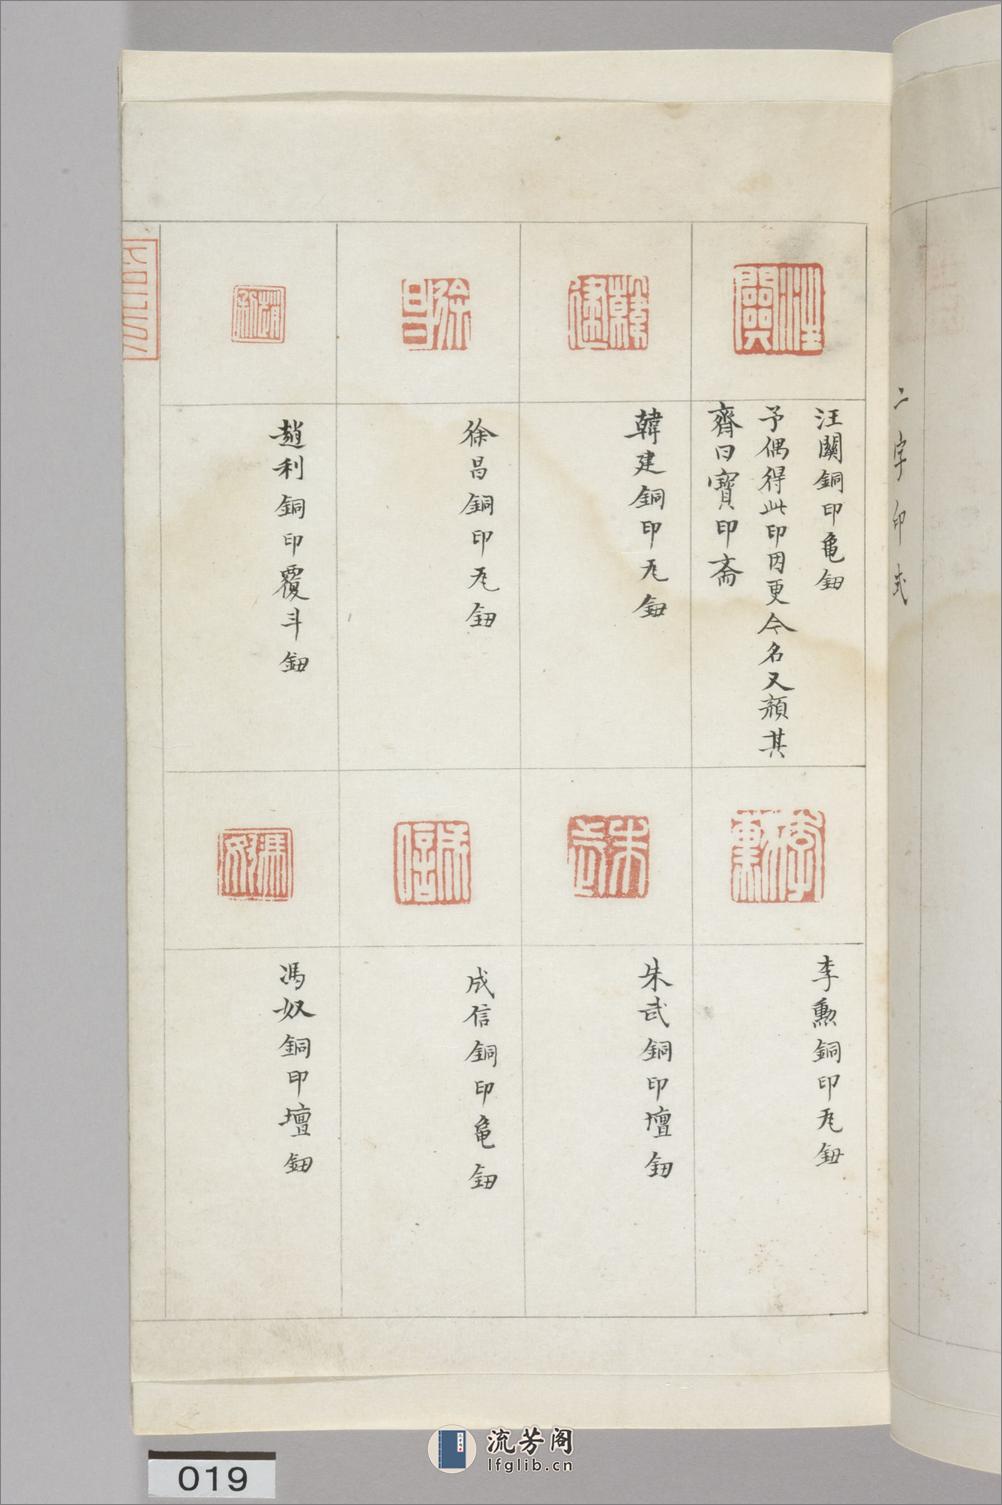 二字印式
汪關
汪關銅印龜鈕
予偶得此印因更今名又顏其
齋曰寶印齋
韓建
韓建銅印瓦鈕
徐昌
徐昌銅印瓦鈕
趙利
趙利銅印覆斗鈕
李勳
李勳銅印瓦鈕
朱武
朱武銅印壇鈕
成信
成信銅印龜鈕
馮奴
馮奴銅印壇鈕
019
流芳阁
lfglib.cn